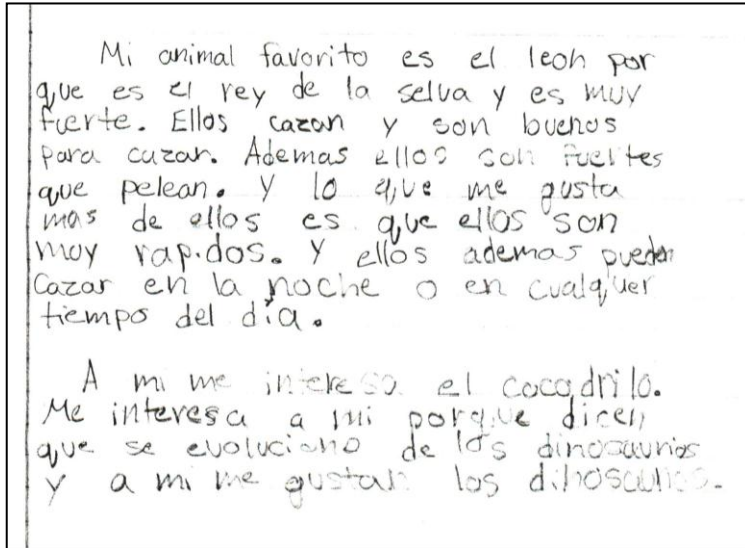 Mi animal favorito es el leon por
que es el rey de la selva y es muy
fuerte. Ellos cazan y son buenos
para cazar. Ademas ellos son fuertes
que pelean. Y lo que me gusta
mas de ellos es que ellos son
muy rapidos. Y ellos ademas pueden
Cazar en la noche o en cualquer
tiempo del día.
A mi me interesa el cocadrilo.
Me interesa a mi porque dicen
que se evoluciono de los dinosaurios
y a mi me gustan los dinosaurios.